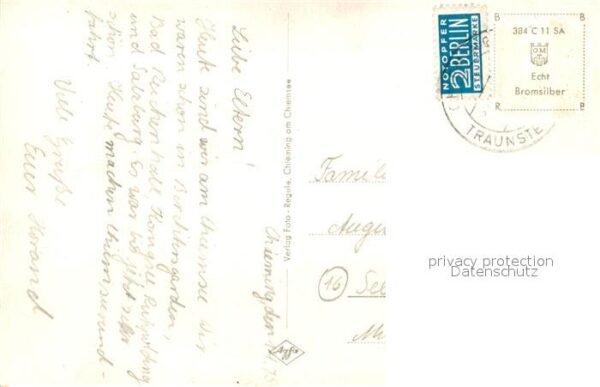 Chieming den
Liebe Eltern!
Heute sind wir am Chiemsee Wir
waren schon in Berchtesgaden,
Bad Reichenhall, Königsee Ruhpolding
und Salzburg Es war bis jetzt sehr
schön. Heute machen Chiemseerund-
fahrt.
Viele Grüße
Euer
Verlag Foto - Regule, Chieming am Chiemsee
Agfa
NOTOPFER
2 BERLIN
STEUERMARKE
TRAUNSTE
B B
384 C 11 SA
Echt
Bromsilber
R B
Famili
Augu
16 See
privacy protection
Datenschutz